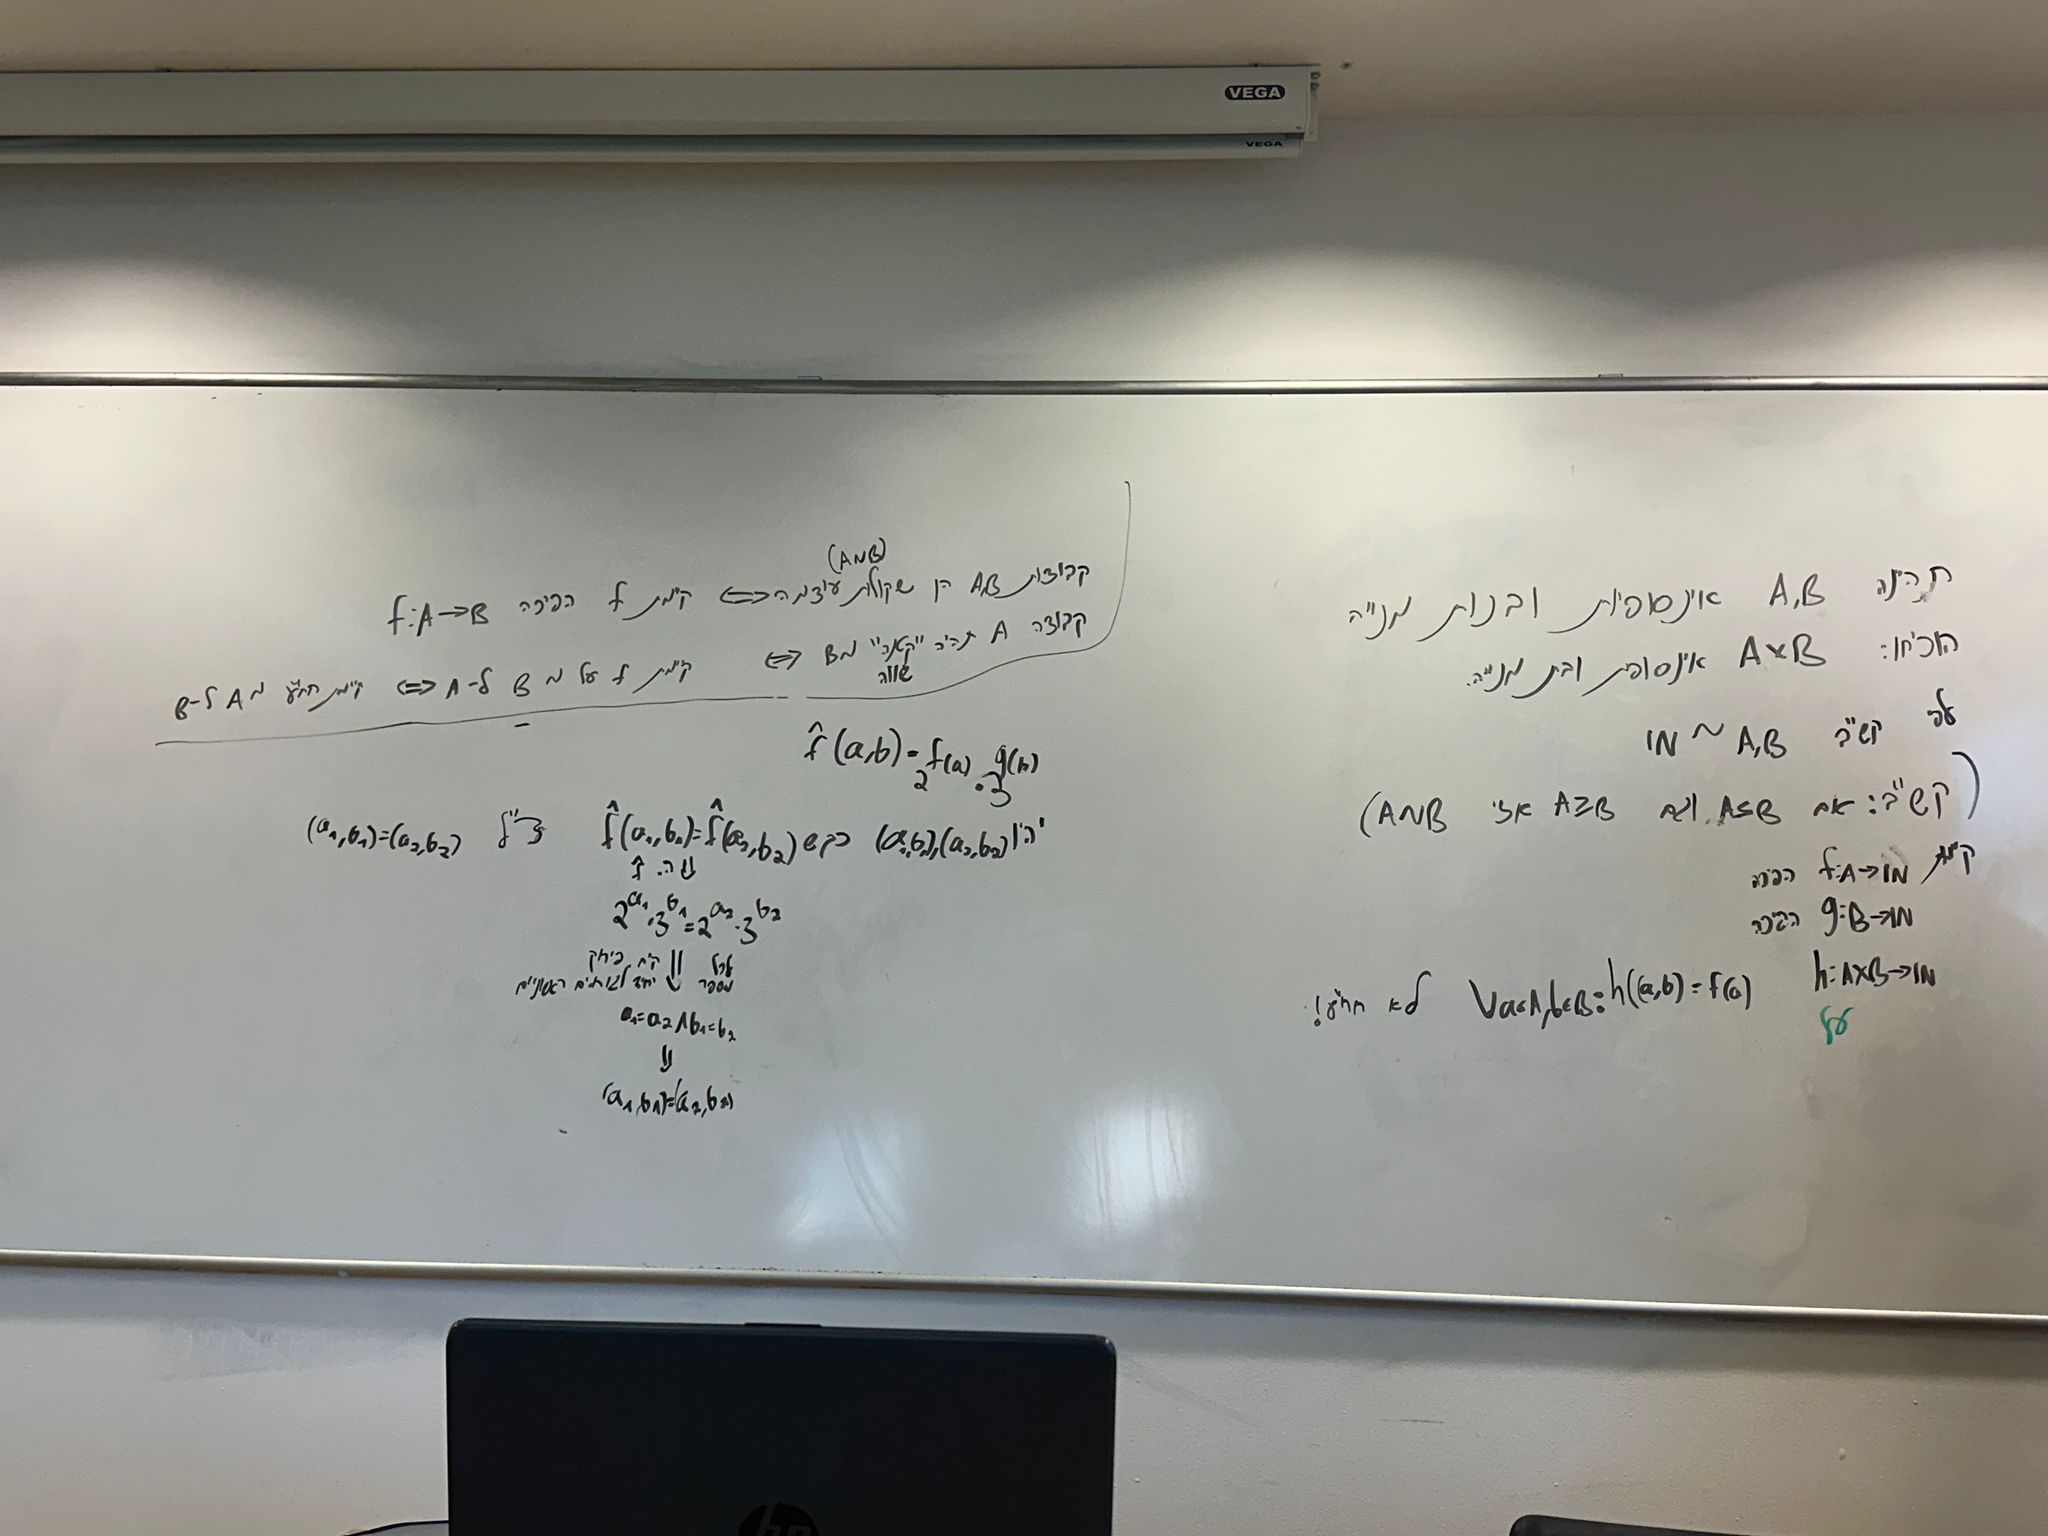 VEGA
VEGA
תהינה A,B אינסופיות ובנות מנייה
הוכיחו: A×B אינסופית ובת מנייה.
לפי קש"ב A,B ~ ℕ
(קש"ב: אם A≤B וגם A≥B אזי A~B)
קיימת f:A→ℕ הפיכה
g:B→ℕ הפיכה
h:A×B→ℕ ∀a∈A,b∈B: h((a,b)=f(a) לא חח"ע!
על
(A~B)
קבוצות A,B הן שקולות עוצמה ⟺ קיימת f הפיכה f:A→B
קבוצה A תהיה "קטנה" מB ⟺ קיימת f על מ B ל-A ⟺ קיימת חח"ע מ A ל-B
שווה
f̂(a,b)=2^f(a)·3^g(b)
יהיו (a₁,b₁),(a₂,b₂) כך ש f̂(a₁,b₁)=f̂(a₂,b₂) צ"ל (a₁,b₁)=(a₂,b₂)
⇓ ה. f̂
2^a₁·3^b₁=2^a₂·3^b₂
⇓ לכל מספר קיים פירוק יחיד לגורמים ראשוניים
a₁=a₂∧b₁=b₂
⇓
(a₁,b₁)=(a₂,b₂)
hp